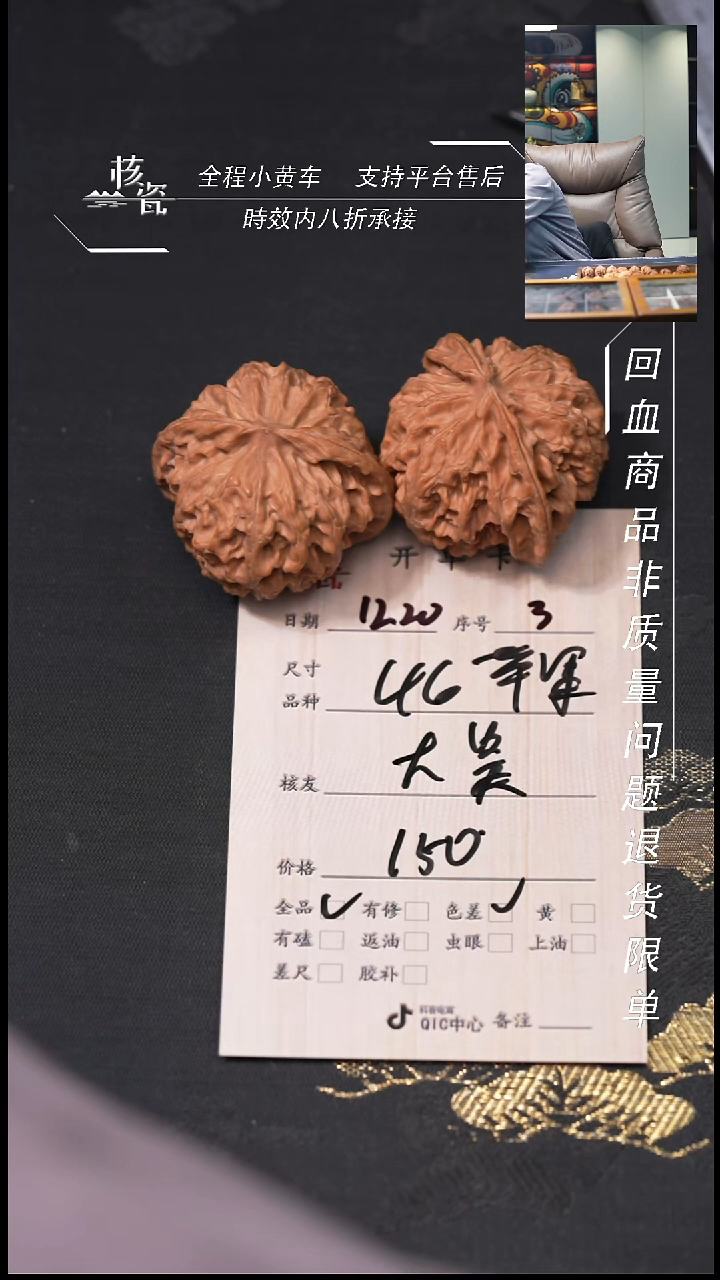 核瓷
全程小黄车 支持平台售后
時效内八折承接
回血商品非质量问题退货限单
开牟卡
日期 12.20 序号 3
尺寸
品种 46苹果
核友 大吴
价格 150
全品 ✓ 有修 色差 ✓ 黄
有磕 返油 虫眼 上油
差尺 胶补
抖音电商
QIC中心 备注